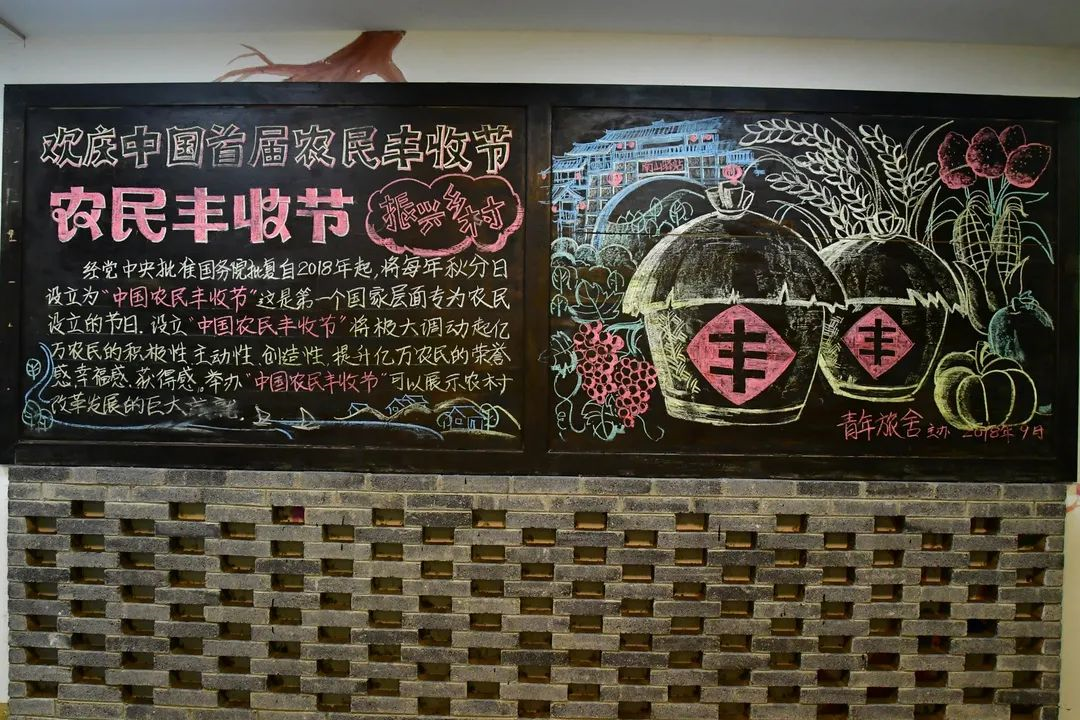 欢庆中国首届农民丰收节
农民丰收节
振兴乡村
经党中央批准国务院批复自2018年起,将每年秋分日
设立为“中国农民丰收节”这是第一个国家层面专为农民
设立的节日.设立“中国农民丰收节”将极大调动起亿
万农民的积极性主动性.创造性.提升亿万农民的荣誉
感.幸福感.获得感.举办“中国农民丰收节”可以展示农村
改革发展的巨大
丰
丰
青年旅舍 主办 2018年9月